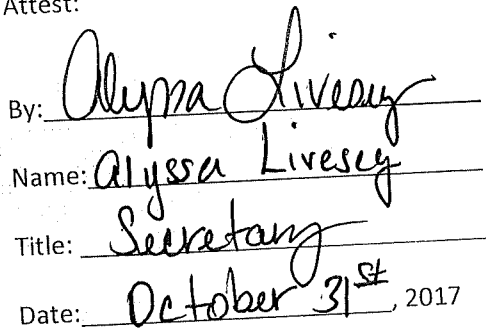 Attest:
By: Alyssa Livesey
Name: Alyssa Livesey
Title: Secretary
Date: October 31st, 2017